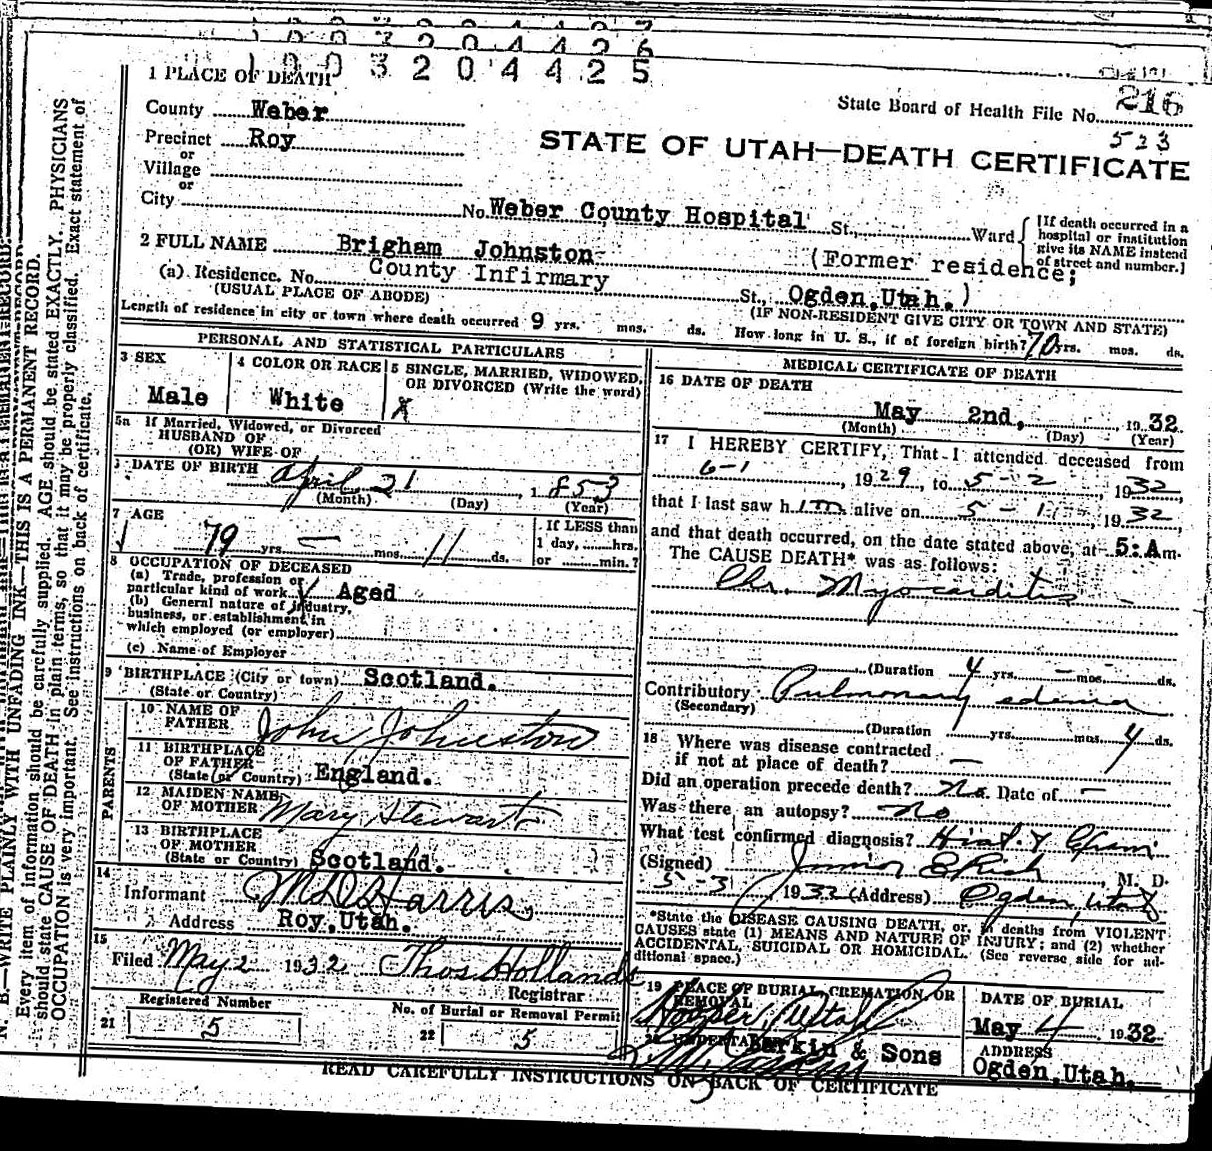 1003204425
1 PLACE OF DEATH
State Board of Health File No. 216
523
County Weber
Precinct Roy
or
Village
or
City
STATE OF UTAH—DEATH CERTIFICATE
No. Weber County Hospital St., Ward
[If death occurred in a hospital or institution give its NAME instead of street and number.]
2 FULL NAME Brigham Johnston
(Former residence;
(a) Residence. No. County Infirmary St., Ogden, Utah.)
(USUAL PLACE OF ABODE)
(IF NON-RESIDENT GIVE CITY OR TOWN AND STATE)
Length of residence in city or town where death occurred 9 yrs. mos. ds. How long in U. S., if of foreign birth? 70 yrs. mos. ds.
PERSONAL AND STATISTICAL PARTICULARS
3 SEX
Male
4 COLOR OR RACE
White
5 SINGLE, MARRIED, WIDOWED, OR DIVORCED (Write the word)
X
5a If Married, Widowed, or Divorced
HUSBAND OF
(OR) WIFE OF
DATE OF BIRTH April 21, 1853
(Month) (Day) (Year)
7 AGE
79 yrs. — mos. 11 ds.
If LESS than
1 day, hrs.
or min.?
8 OCCUPATION OF DECEASED
(a) Trade, profession or
particular kind of work Aged
(b) General nature of industry,
business, or establishment in
which employed (or employer)
(c) Name of Employer
9 BIRTHPLACE (City or town) Scotland.
(State or Country)
PARENTS
10 NAME OF
FATHER John Johnston
11 BIRTHPLACE
OF FATHER
(State or Country) England.
12 MAIDEN NAME
OF MOTHER Mary Stewart
13 BIRTHPLACE
OF MOTHER
(State or Country) Scotland.
14
Informant M D Harris
Address Roy, Utah.
15
Filed May 2 1932 Thos Hollands
Registrar
Registered Number
21 5
No. of Burial or Removal Permit
22 5
MEDICAL CERTIFICATE OF DEATH
16 DATE OF DEATH
May 2nd, 1932
(Month) (Day) (Year)
17 I HEREBY CERTIFY, That I attended deceased from
6-1, 1929, to 5-2, 1932,
that I last saw him alive on 5-1, 1932,
and that death occurred, on the date stated above, at 5:Am.
The CAUSE DEATH* was as follows:
Chr. Myocarditis
(Duration 4 yrs. — mos. ds.
Contributory Pulmonary edema
(Secondary)
(Duration yrs. mos. 4 ds.
18 Where was disease contracted
if not at place of death? —
Did an operation precede death? No. Date of —
Was there an autopsy? No
What test confirmed diagnosis?
(Signed) Junior E Rich, M. D.
5-3, 1932 (Address) Ogden, Utah
*State the DISEASE CAUSING DEATH, or, in deaths from VIOLENT
CAUSES state (1) MEANS AND NATURE OF INJURY; and (2) whether
ACCIDENTAL, SUICIDAL OR HOMICIDAL. (See reverse side for ad-
ditional space.)
19 PLACE OF BURIAL, CREMATION, OR
REMOVAL
Hooper, Utah
DATE OF BURIAL
May 4 1932
20 UNDERTAKER Larkin & Sons
ADDRESS
Ogden, Utah.
READ CAREFULLY INSTRUCTIONS ON BACK OF CERTIFICATE
N. B.—WRITE PLAINLY WITH UNFADING INK—THIS IS A PERMANENT RECORD.
Every item of information should be carefully supplied. AGE should be stated EXACTLY. PHYSICIANS
should state CAUSE OF DEATH in plain terms, so that it may be properly classified. Exact statement of
OCCUPATION is very important. See instructions on back of certificate.